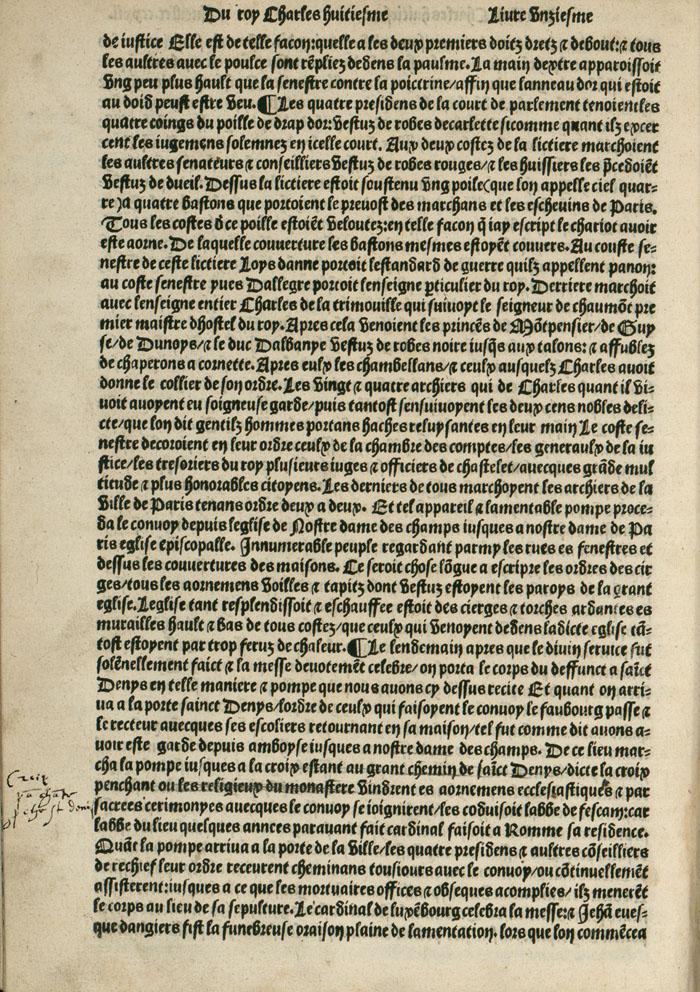 Du roy Charles huitiesme Liure Vnziesme
de iustice Elle est de telle facon:quelle a les deux premiers doitz dretz ⁊ debout:⁊ tous
les aultres auec le poulce sont rēpliez dedens la paulme. La main dextre apparoissoit
vng peu plus hault que la senestre contre la poictrine/affin que lanneau dor qui estoit
au doid peust estre veu. ¶Les quatre presidens de la court de parlement tenoient les
quatre coings du poille de drap dor:vestuz de robes decarlette si comme quant ilz exer
cent les iugemens solemnez en icelle court. Aux deux costez de la lictiere marchoient
les aultres senateurs ⁊ conseilliers vestuz de robes rouges/⁊ les huissiers les p̄cedoiēt
vestuz de dueil. Dessus la lictiere estoit soustenu vng poile(que lon appelle ciel quar-
re)a quatre bastons que portoient le preuost des marchans et les escheuins de Paris.
Tous les costes d̄ ce poille estoiēt veloutez:en telle facon q̄ iay escript le chariot auoir
este aorne. De laquelle couuerture les bastons mesmes estoyēt couuers. Au couste se-
nestre de ceste lictiere Loys danne portoit lestandard de guerre quilz appellent panon:
au coste senestre yues Dallegre portoit lenseigne ꝑticulier du roy. Derriere marchoit
auec lenseigne entier Charles de la trimouille qui suiuoyt le seigneur de chaumōt pre
mier maistre dhostel du roy. Apres cela venoient les princes de Mōtpensier/de Guy
se/de Dunoys/⁊ le duc Dalbanye vestuz de robes noire iusq̄s aux talons:⁊ affublez
de chaperons a cornette. Apres eulx les chambellans/⁊ ceulx ausquelz Charles auoit
donne le collier de son ordre. Les vingt ⁊ quatre archiers qui de Charles quant il vi-
uoit auoyent eu soigneuse garde/puis tantost sensuiuoyent les deux cens nobles deli-
cte/que lon dit gentilz hommes portans haches reluysantes en leur main Le coste se-
nestre decoroient en leur ordre ceulx de la chambre des comptes/les generaulx de la iu
stice/les tresoriers du roy plusieurs iuges ⁊ officiers de chastelet/auecques grāde mul
titude ⁊ plus honorables citoyens. Les derniers de tous marchoyent les archiers de la
ville de Paris tenans ordre deux a deux. Et tel appareil ⁊ lamentable pompe proce-
da le conuoy depuis leglise de Nostre dame des champs iusques a nostre dame de Pa
ris eglise episcopalle. Innumerable peuple regardant parmy les rues es fenestres et
dessus les couuertures des maisons. Ce seroit chose lōgue a escripre les ordres des cir
ges/tous les aornemens voilles ⁊ tapitz dont vestuz estoyent les paroys de la grant
eglise. Leglise tant resplendissoit ⁊ eschauffee estoit des cierges ⁊ torches ardantes es
murailles hault ⁊ bas de tous costez/que ceulx qui venoyent dedens ladicte eglise tā-
tost estoyent par trop feruz de chaleur. ¶Le lendemain apres que le diuin seruice fut
solēnellement faict ⁊ la messe deuotemēt celebre/on porta le corps du deffunct a saīct
Denys en telle maniere ⁊ pompe que nous auons cy dessus recite Et quant on arri-
ua a la porte sainct Denys/lordre de ceulx qui faisoyent le conuoy le faubourg passe ⁊
le recteur auecques ses escoliers retournant en sa maison/tel fut comme dit auons a-
uoir este garde depuis amboyse iusques a nostre dame des champs. De ce lieu mar-
cha la pompe iusques a la croix estant au grant chemin de saīct Denys/dicte la croix
penchant ou les religieux du monastere vindrent es aornemens ecclesiastiques ⁊ par
sacrees cerimonyes auecques le conuoy se ioignirent/les cōduisoit labbe de fescam:car
labbe du lieu quelques annees parauant fait cardinal faisoit a Romme sa residence.
Quāt la pompe arriua a la porte de la ville/les quatre presidens ⁊ aultres cōseilliers
de rechief leur ordre receurent cheminans tousiours auec le conuoy/ou cōtinuellemēt
assisterent:iusques a ce que les mortuaires offices ⁊ obseques acomplies/ilz menerēt
le corps au lieu de sa sepulture. Le cardinal de luxēbourg celebra la messe:⁊ Jehā eues-
que dangiers fist la funebreuse oraison plaine de lamentation. lors que lon commēcea
Croix
st denis